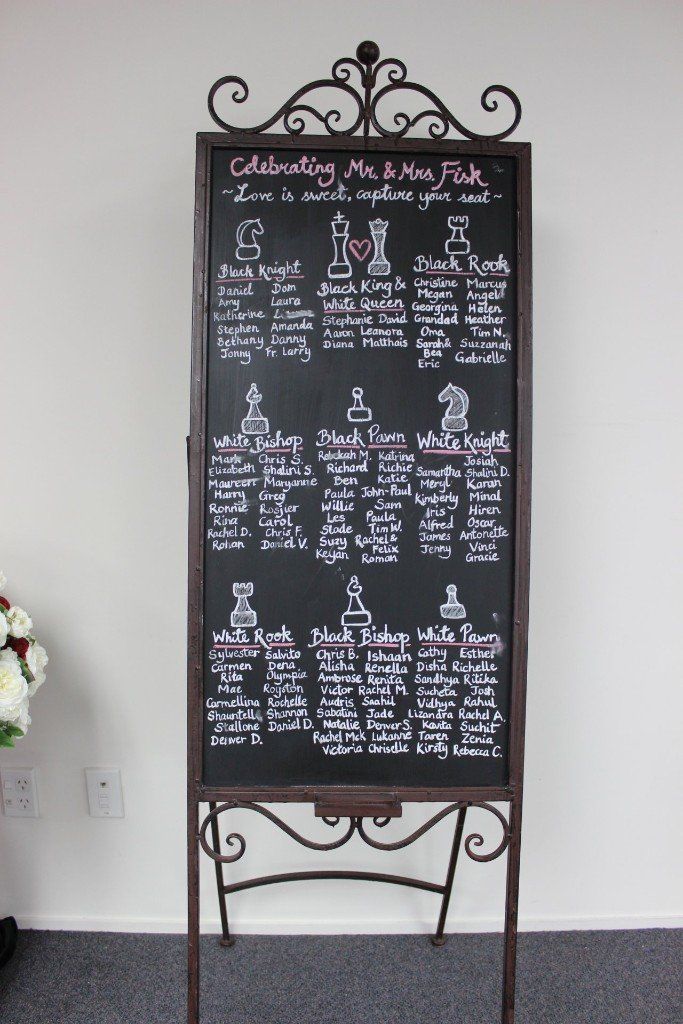 Celebrating Mr. & Mrs. Fisk
~Love is sweet, capture your seat~
Black Knight
Daniel Dom
Amy Laura
Katherine
Stephen Amanda
Bethany Danny
Jonny Fr. Larry
Black King &
White Queen
Stephanie David
Aaron Leanora
Diana Matthais
Black Rook
Christine Marcus
Megan Angela
Georgina Helen
Grandad Heather
Oma Tim N.
Sarah& Suzzanah
Bea Gabrielle
Eric
White Bishop
Mark Chris S.
Elizabeth Shalini S.
Maureen Maryanne
Harry Greg
Ronnie Rosjier
Rina Carol
Rachel D. Chris F.
Rohan Daniel V.
Black Pawn
Rebekah M. Katrina
Richard Richie
Ben Katie
Paula John-Paul
Willie Sam
Les Paula
Slade Tim W.
Suzy Rachel &
Keyan Felix
Roman
White Knight
Josiah
Samantha Shalini D.
Meryl Karan
Kimberly Minal
Iris Hiren
Alfred Oscar
James Antonette
Jenny Vinci
Gracie
White Rook
Sylvester Salvito
Carmen Dena
Rita Olympia
Mae Royston
Carmellina Rochelle
Shauntell Shannon
Stallone Daniel D.
Denver D.
Black Bishop
Chris B. Ishaan
Alisha Renella
Ambrose Renita
Victor Rachel M.
Audris Saahil
Sabatini Jade
Natalie Denver S.
Rachel McK Lukanne
Victoria Chriselle
White Pawn
Cathy Esther
Disha Richelle
Sandhya Ritika
Sucheta Josh
Vidhya Rahul
Lizandra Rachel A.
Kavita Suchit
Taren Zenia
Kirsty Rebecca C.